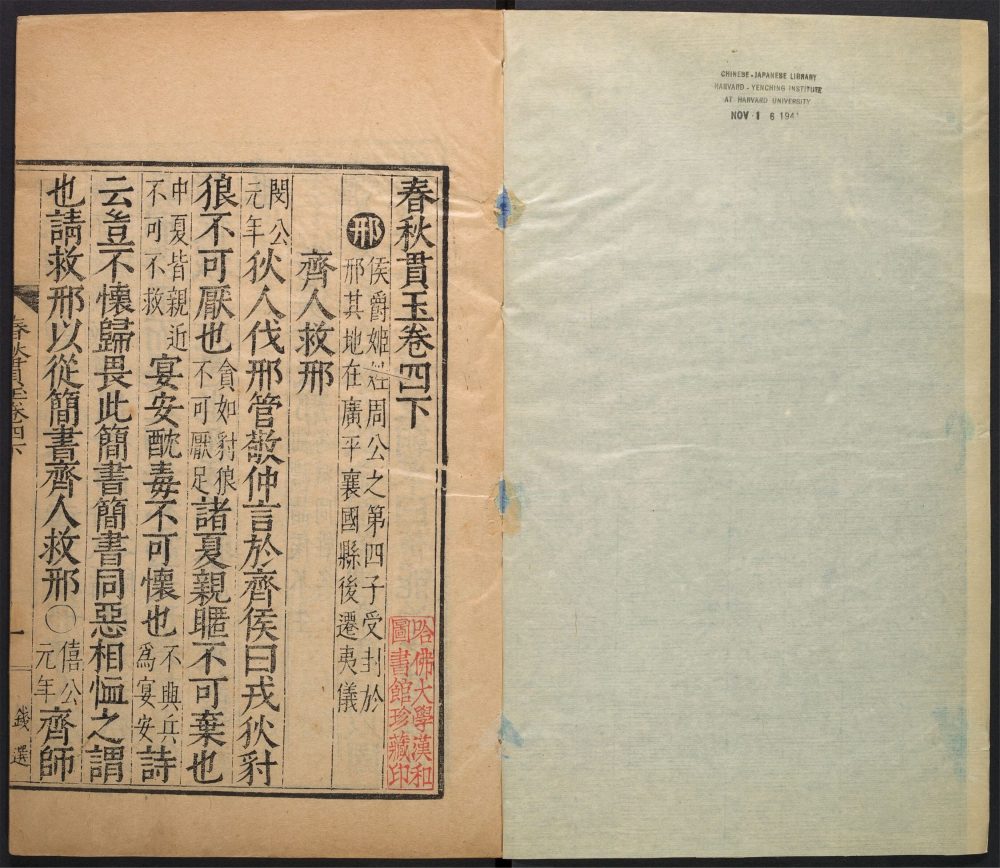 CHINESE-JAPANESE LIBRARY
HARVARD-YENCHING INSTITUTE
AT HARVARD UNIVERSITY
NOV 1 6 1941
春秋貫玉卷四下
邢 侯爵姬姓周公之第四子受封於
邢其地在廣平襄國縣後遷夷儀
齊人救邢
閔公
元年 狄人伐邢管敬仲言於齊侯曰戎狄豺
狼不可厭也 貪如豺狼
不可厭足 諸夏親暱不可棄也
中夏皆親近
不可不救 宴安酖毒不可懷也 不興兵
為宴安 詩
云豈不懷歸畏此簡書簡書同惡相恤之謂
也請救邢以從簡書齊人救邢〇 僖公
元年 齊師
哈佛大學漢和
圖書館珍藏印
春秋貫玉卷四下
一
錢選